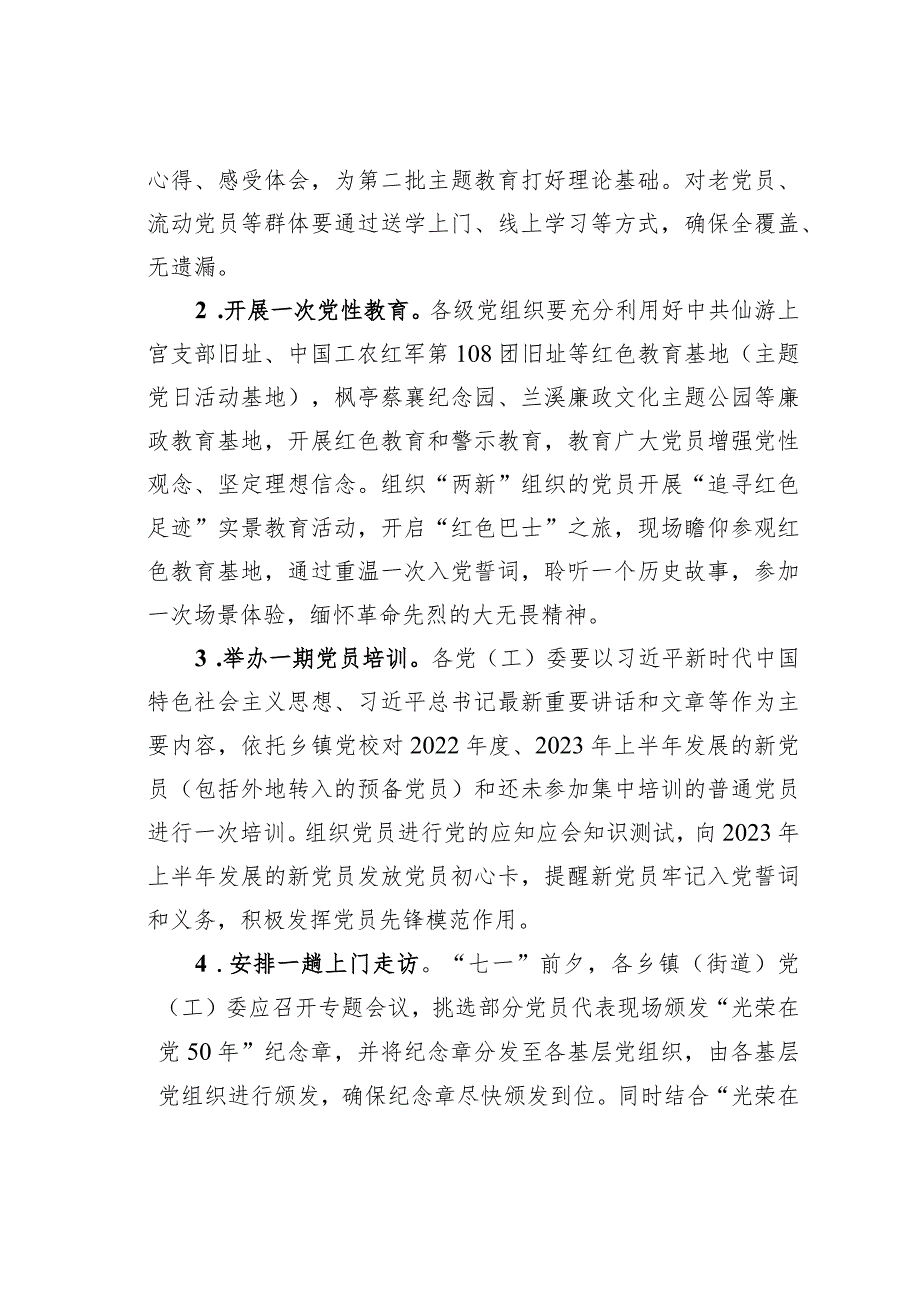 心得、感受体会，为第二批主题教育打好理论基础。对老党员、
流动党员等群体要通过送学上门、线上学习等方式，确保全覆盖、
无遗漏。
2 .开展一次党性教育。各级党组织要充分利用好中共仙游上
宫支部旧址、中国工农红军第 108 团旧址等红色教育基地（主题
党日活动基地），枫亭蔡襄纪念园、兰溪廉政文化主题公园等廉
政教育基地，开展红色教育和警示教育，教育广大党员增强党性
观念、坚定理想信念。组织“两新”组织的党员开展“追寻红色
足迹”实景教育活动，开启“红色巴士”之旅，现场瞻仰参观红
色教育基地，通过重温一次入党誓词，聆听一个历史故事，参加
一次场景体验，缅怀革命先烈的大无畏精神。
3 .举办一期党员培训。各党（工）委要以习近平新时代中国
特色社会主义思想、习近平总书记最新重要讲话和文章等作为主
要内容，依托乡镇党校对 2022 年度、2023 年上半年发展的新党
员（包括外地转入的预备党员）和还未参加集中培训的普通党员
进行一次培训。组织党员进行党的应知应会知识测试，向 2023 年
上半年发展的新党员发放党员初心卡，提醒新党员牢记入党誓词
和义务，积极发挥党员先锋模范作用。
4 . 安排一趟上门走访。“七一”前夕，各乡镇（街道）党
（工）委应召开专题会议，挑选部分党员代表现场颁发“光荣在
党 50 年”纪念章，并将纪念章分发至各基层党组织，由各基层
党组织进行颁发，确保纪念章尽快颁发到位。同时结合“光荣在